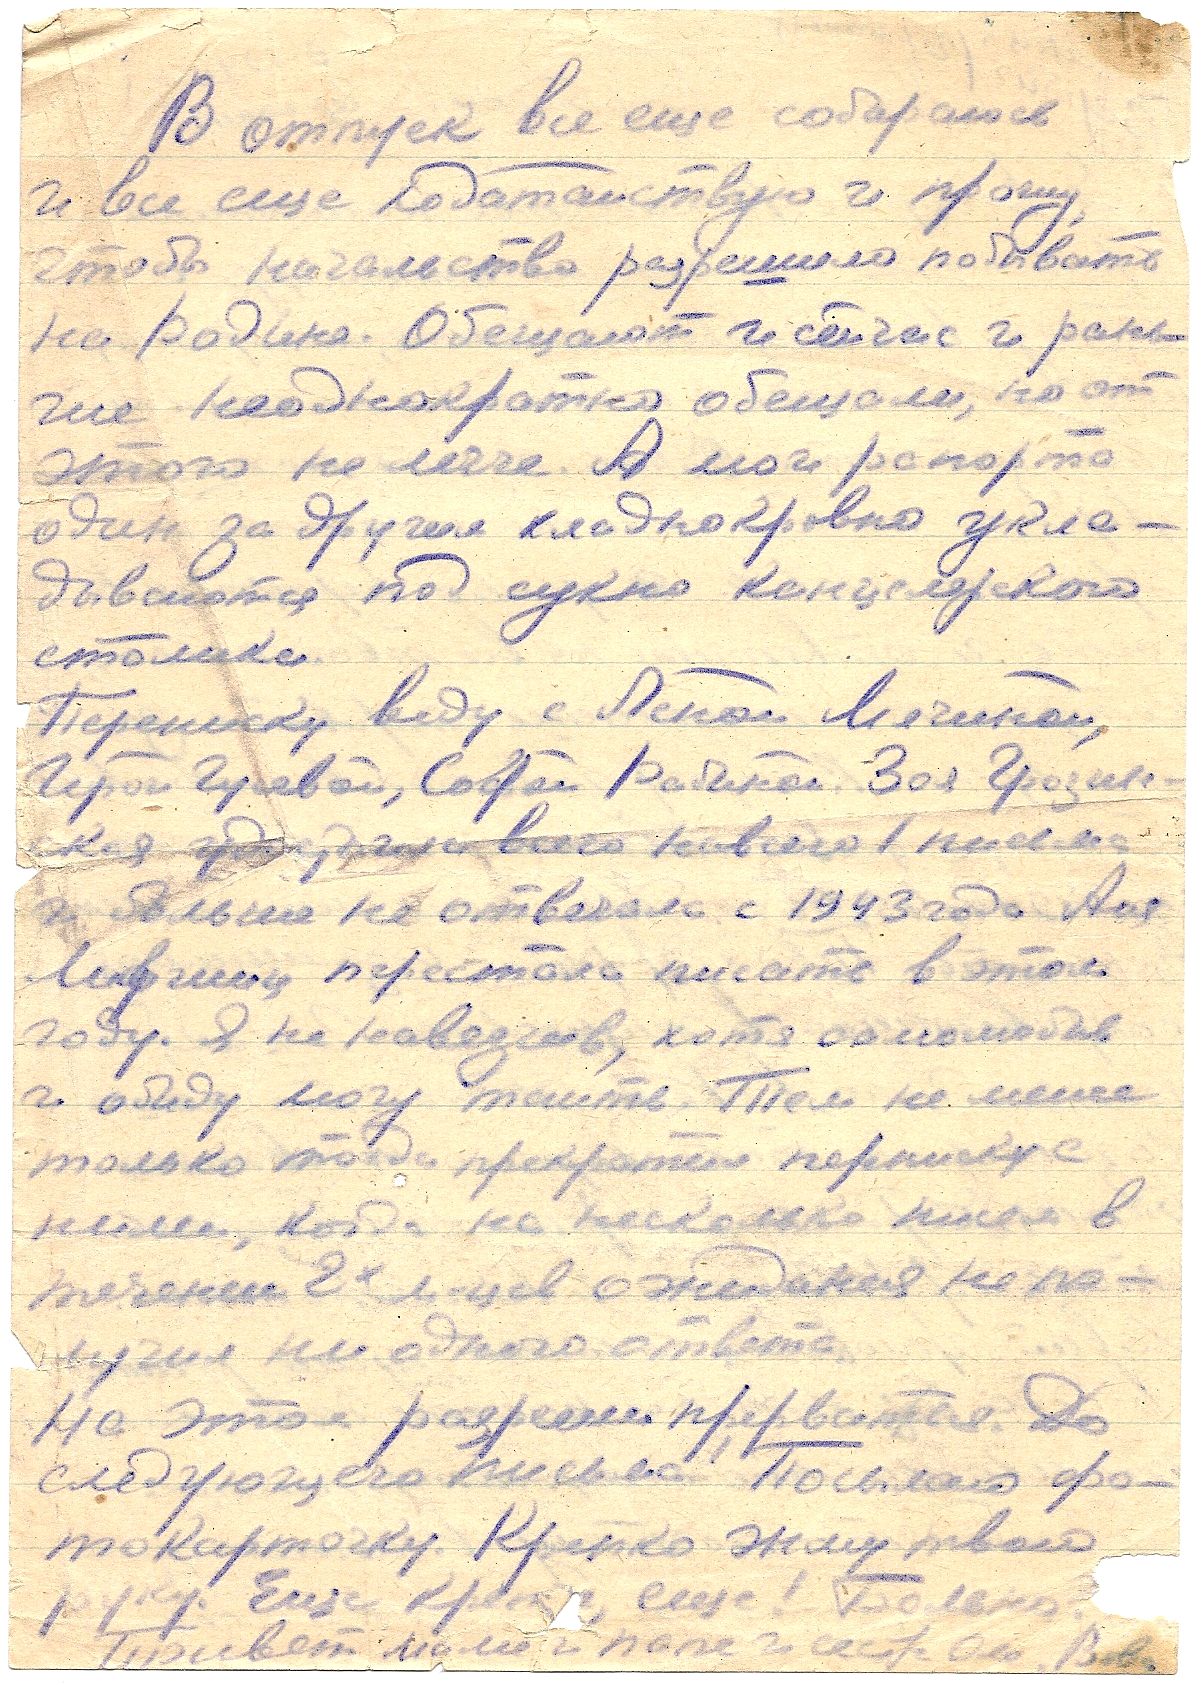 В отпуск все еще собираюсь
и все еще ходатайствую и прошу,
чтобы начальство разрешило побывать
на Родине. Обещают и сейчас и рань-
ше неоднократно обещали, но от
этого не легче. А мои рапорта
один за другим хладнокровно укла-
дываются под сукно канцелярского
столика.
Переписку веду с Леной Мячиной,
Ирой Гуревой, Софой Рабиной. Зоя Грозин-
ская всего навсего 1 письмо
и больше не отвечала с 1943 года. Аня
перестала писать в этом
году. Я не навязчив, хотя самолюбив
и обиду могу таить. Тем не менее
только тогда прекратил переписку с
ними, когда на несколько писем в
течении 2х м-цев ожидания не по-
лучил ни одного ответа.
На этом разреши прерваться. До
следующего письма. Посылаю фо-
токарточку. Крепко жму твою
руку. Еще крепче, еще! Больно.
Привет маме и папе и сестрам. Вова